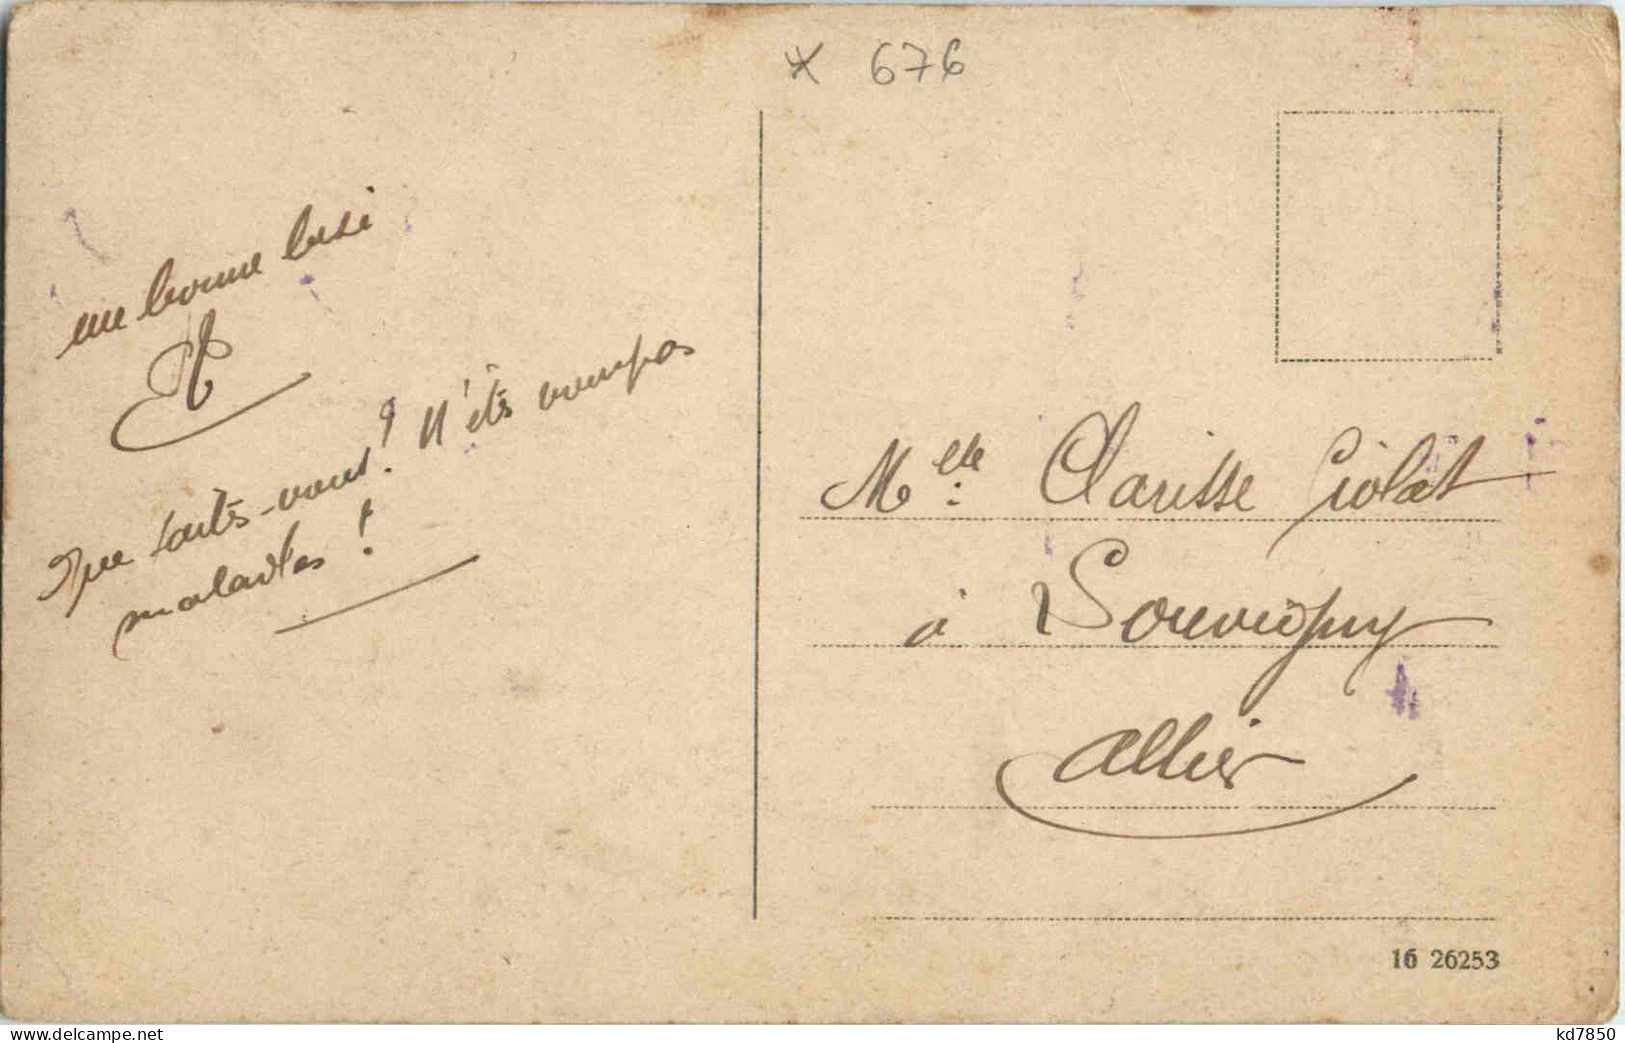 * 676
une bonne bisi
Que faites-vous? N'êts vous pas
malades!
Mlle: Clarisse Giolat
à Souvigny
Allier
16 26253
www.delcampe.net
kd7850